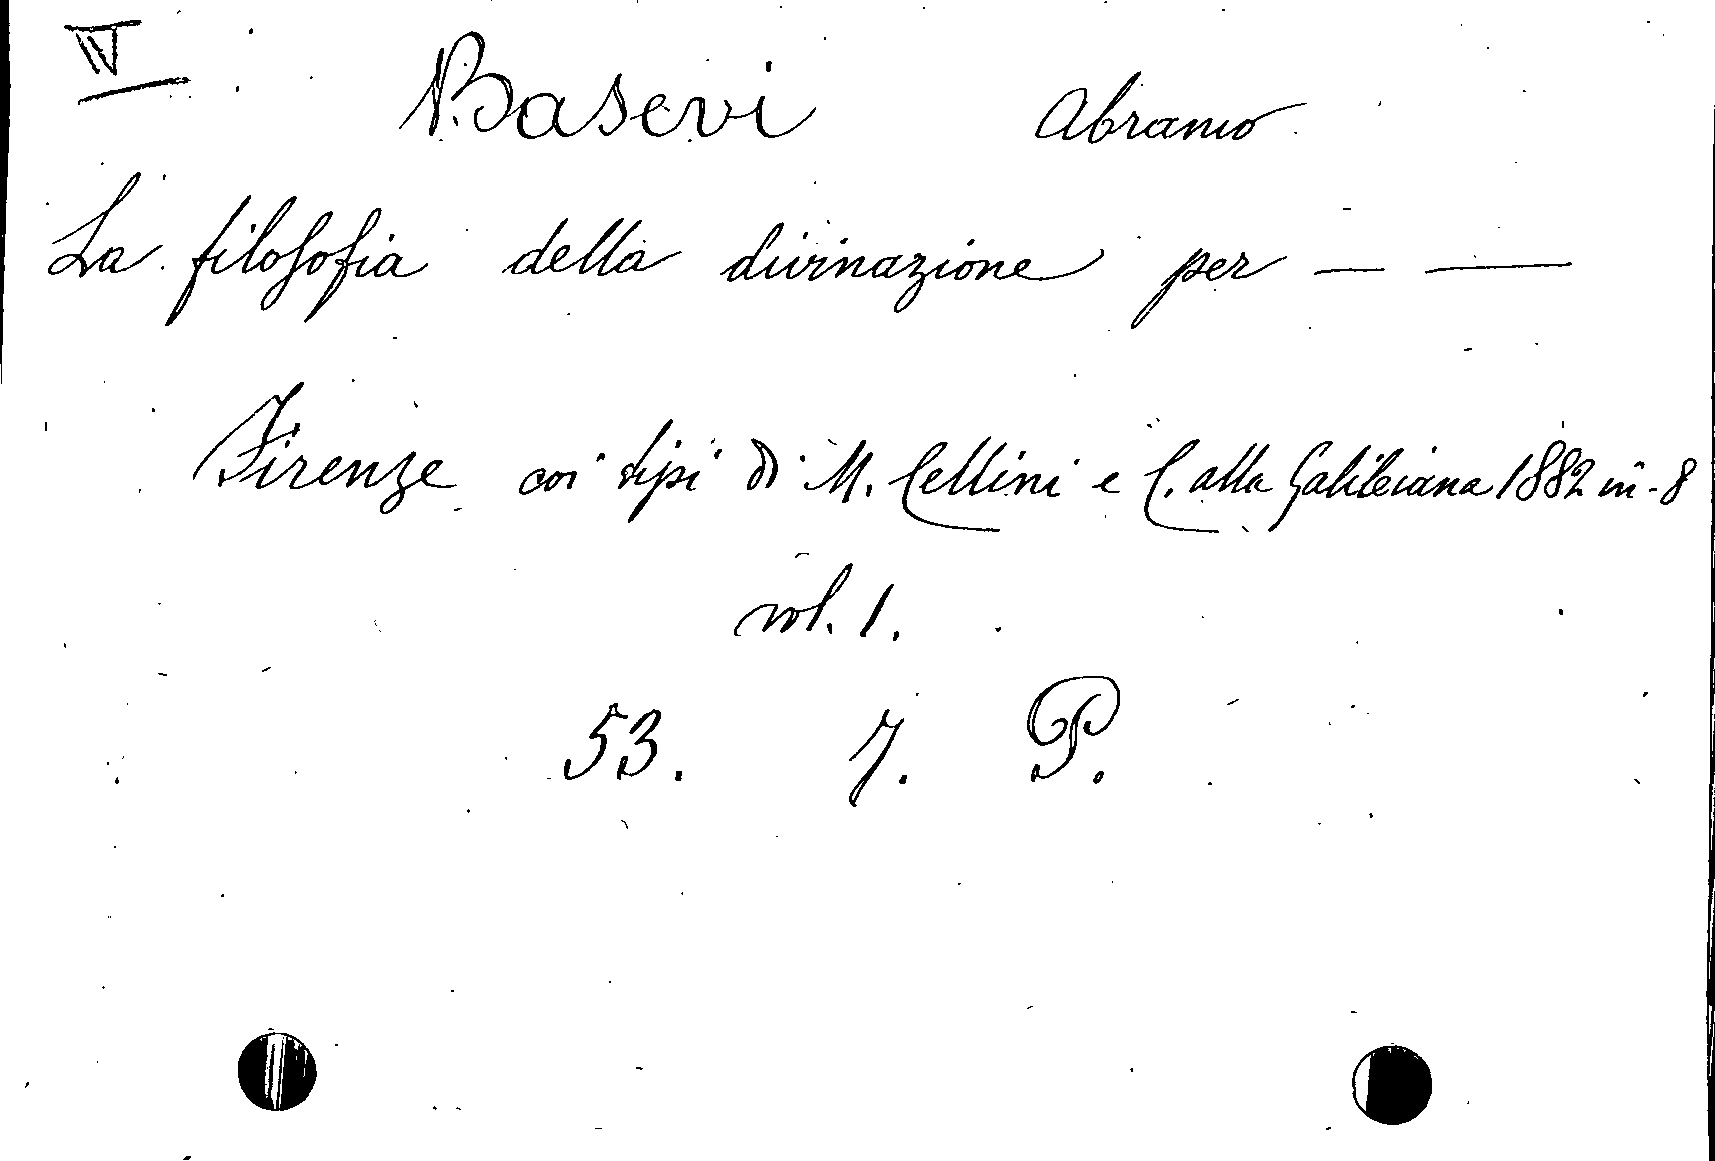 IV
Basevi Abramo
La filosofia della divinazione per — —
Firenze coi tipi di M. Cellini e C. alla Galileiana 1882 in-8
vol. 1.
53. 7. P.